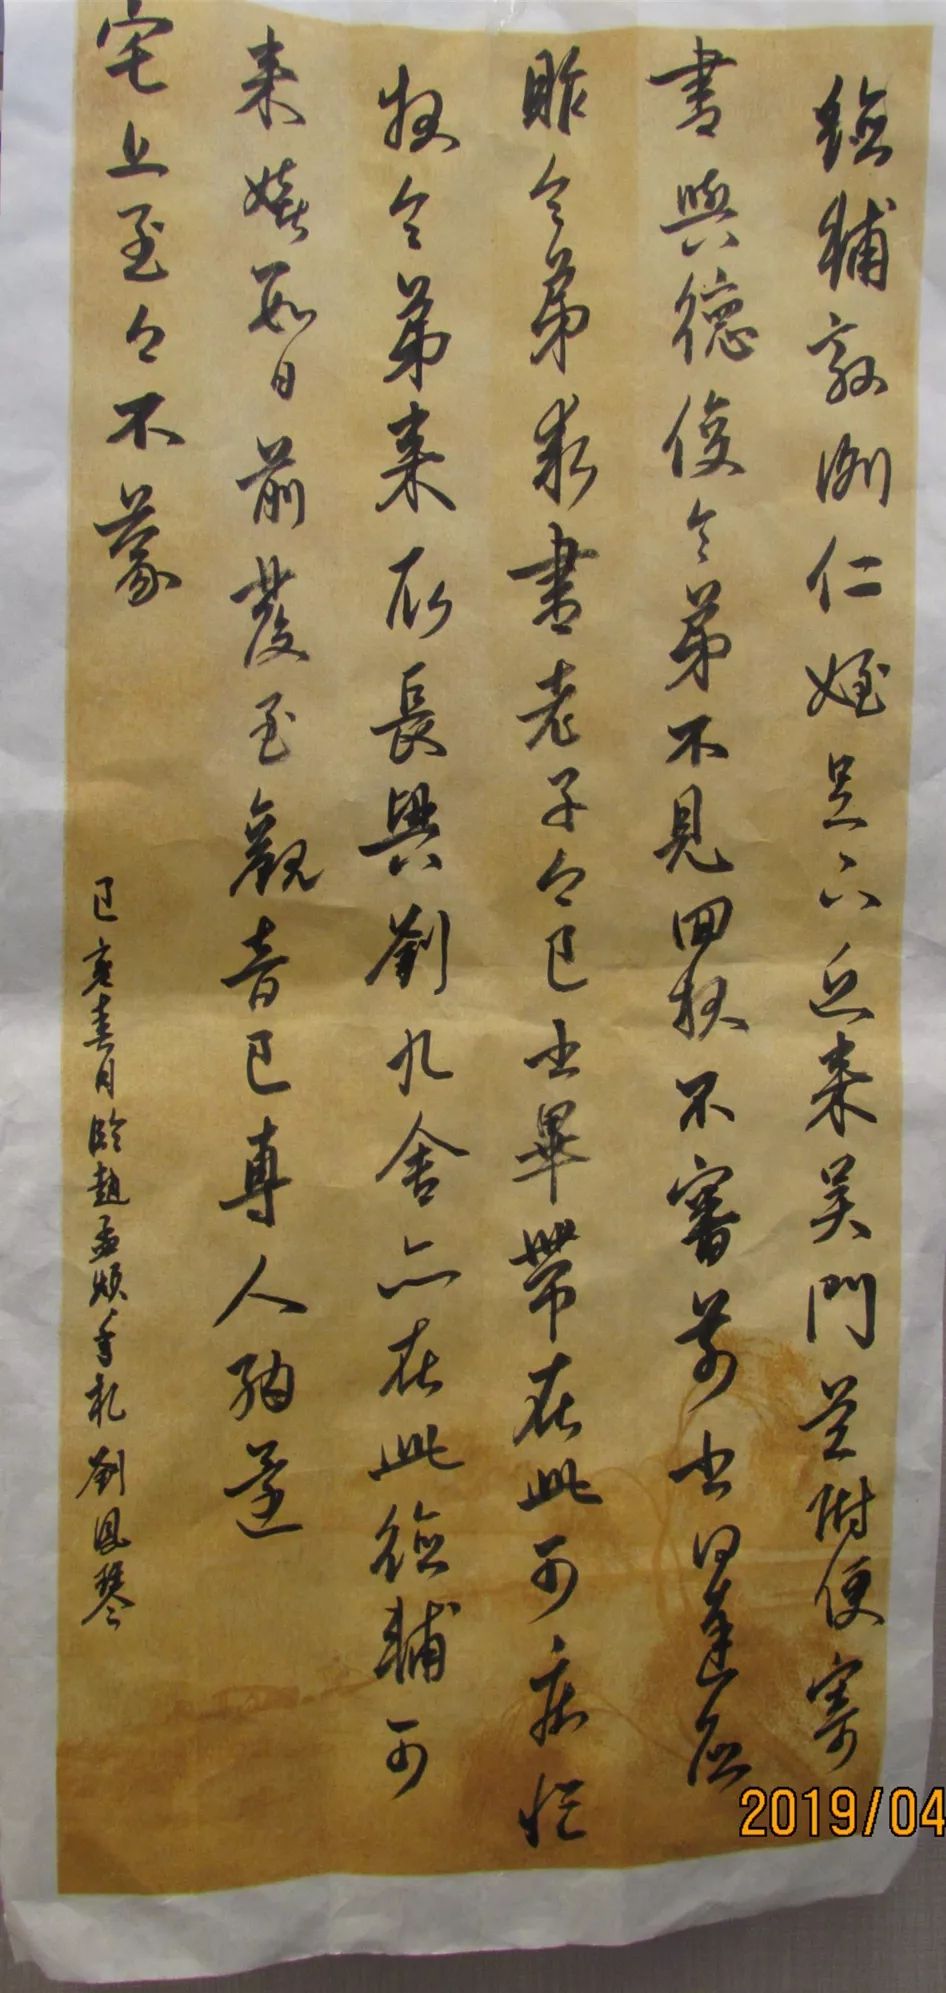 德輔教諭仁姪足下近來吳門曾附便寄
書與德俊令弟不見回報不審前書得達否
昨令弟求書老子今已書畢帶在此可疾忙
報令弟來取長興劉九舍亦在此德輔可
來嬉數日前發至觀音已專人納還
宅上至今不蒙
己亥春月臨趙孟頫手札 劉鳳琴
2019/04